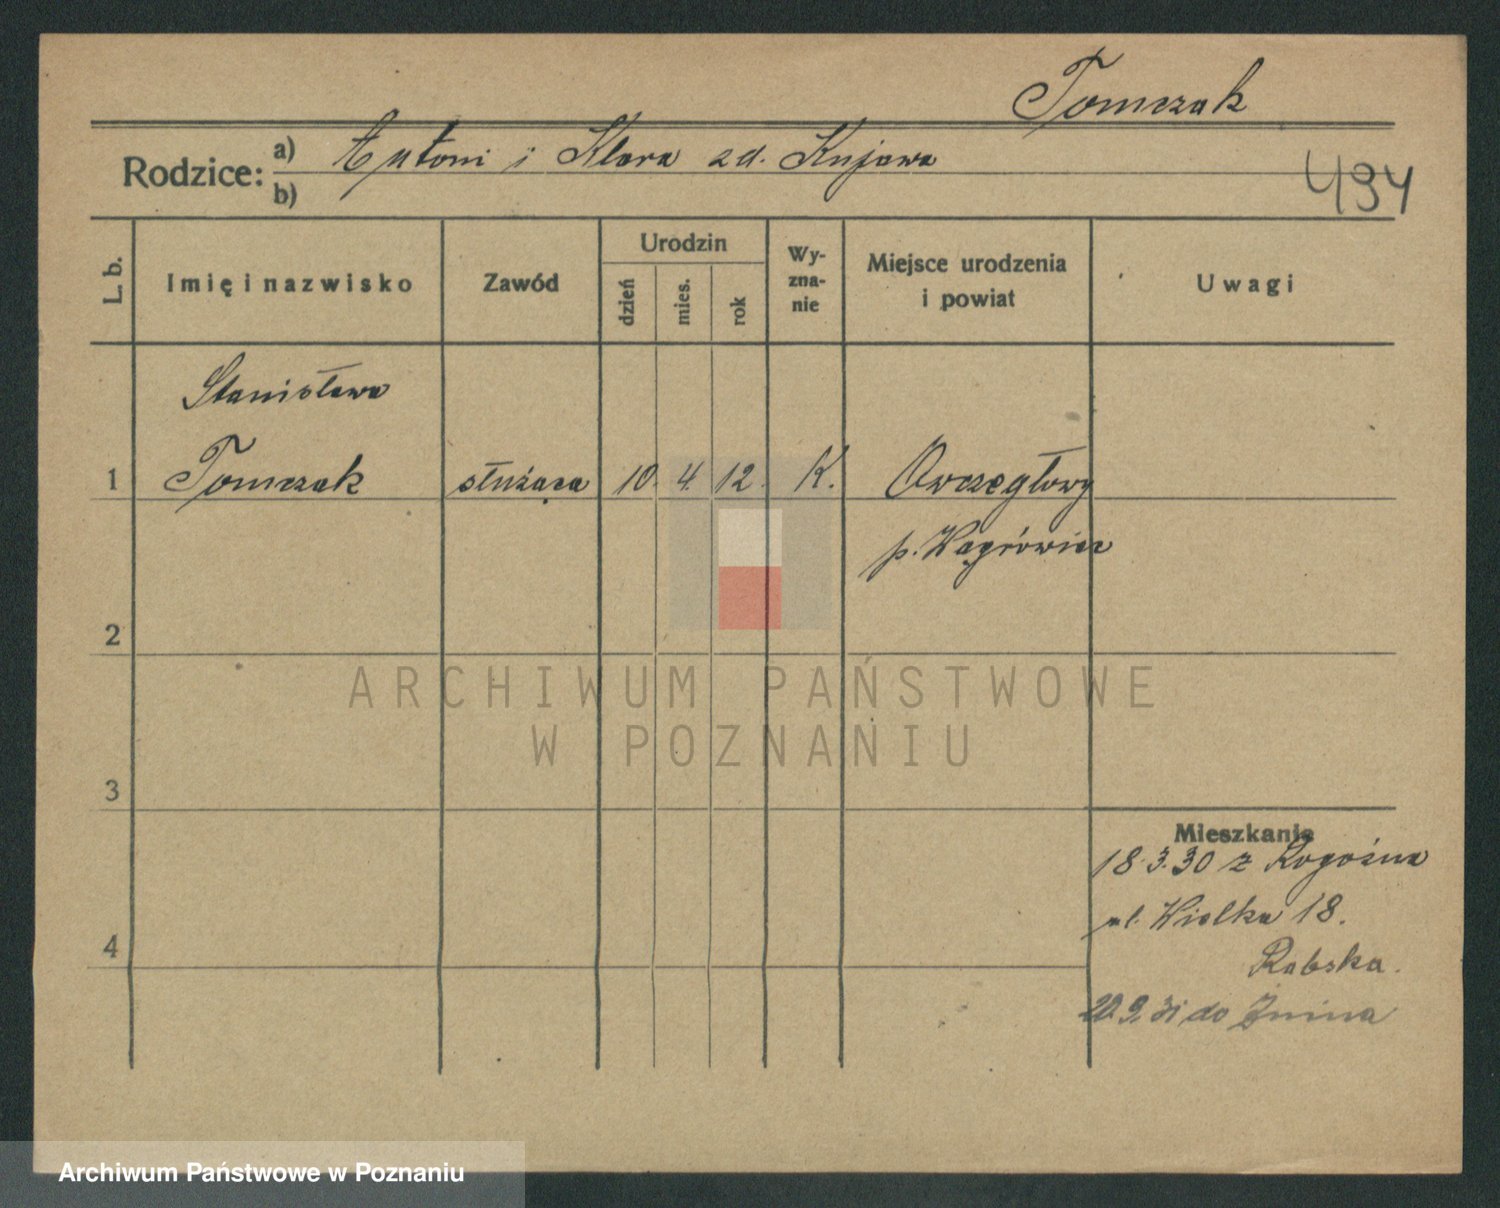 Tomczak
Rodzice: a) Antoni i Klara zd. Kujawa
b)
494
L. b.
Imię i nazwisko
Zawód
Urodzin
dzień
mies.
rok
Wy-
zna-
nie
Miejsce urodzenia
i powiat
Uwagi
Stanisława
1 Tomczak służąca 10. 4. 12. K. Owczegłowy
p. Wągrówiec
2
3
4
Mieszkanie
18.3.30 z Rogoźna
ul. Wielka 18.
Rabska.
20.9.31 do Żnina
ARCHIWUM PAŃSTWOWE
W POZNANIU
Archiwum Państwowe w Poznaniu